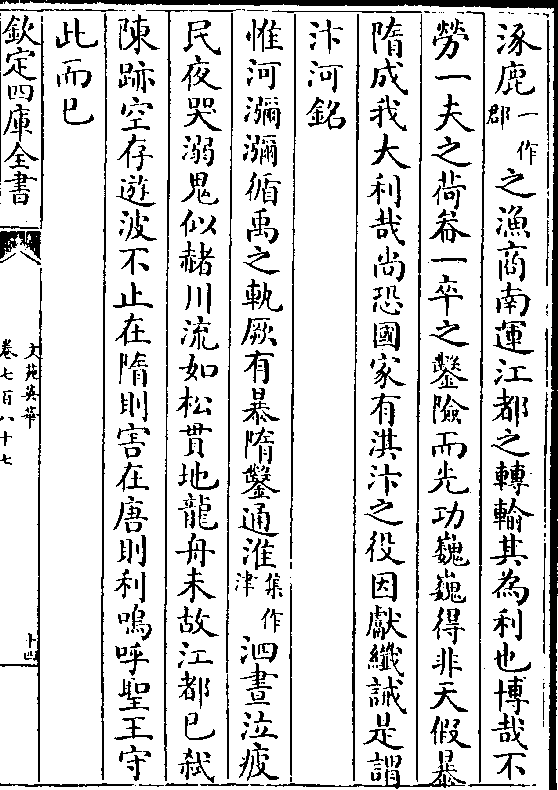 涿鹿一作郡之漁商南運江都之轉輸其為利也博哉不
勞一夫之荷畚一卒之鑿險而先功巍巍得非天假暴
隋成我大利哉尚恐國家有淇汴之役因獻纖誡是謂
汴河銘
惟河瀰瀰循禹之軌厥有暴隋鑿通淮集作津泗晝泣疲
民夜哭溺鬼似赭川流如松貫地龍舟未故江都已弑
陳跡空存逝波不止在隋則害在唐則利嗚呼聖王守
此而已
欽定四庫全書
文苑英華
卷七百八十七
十四